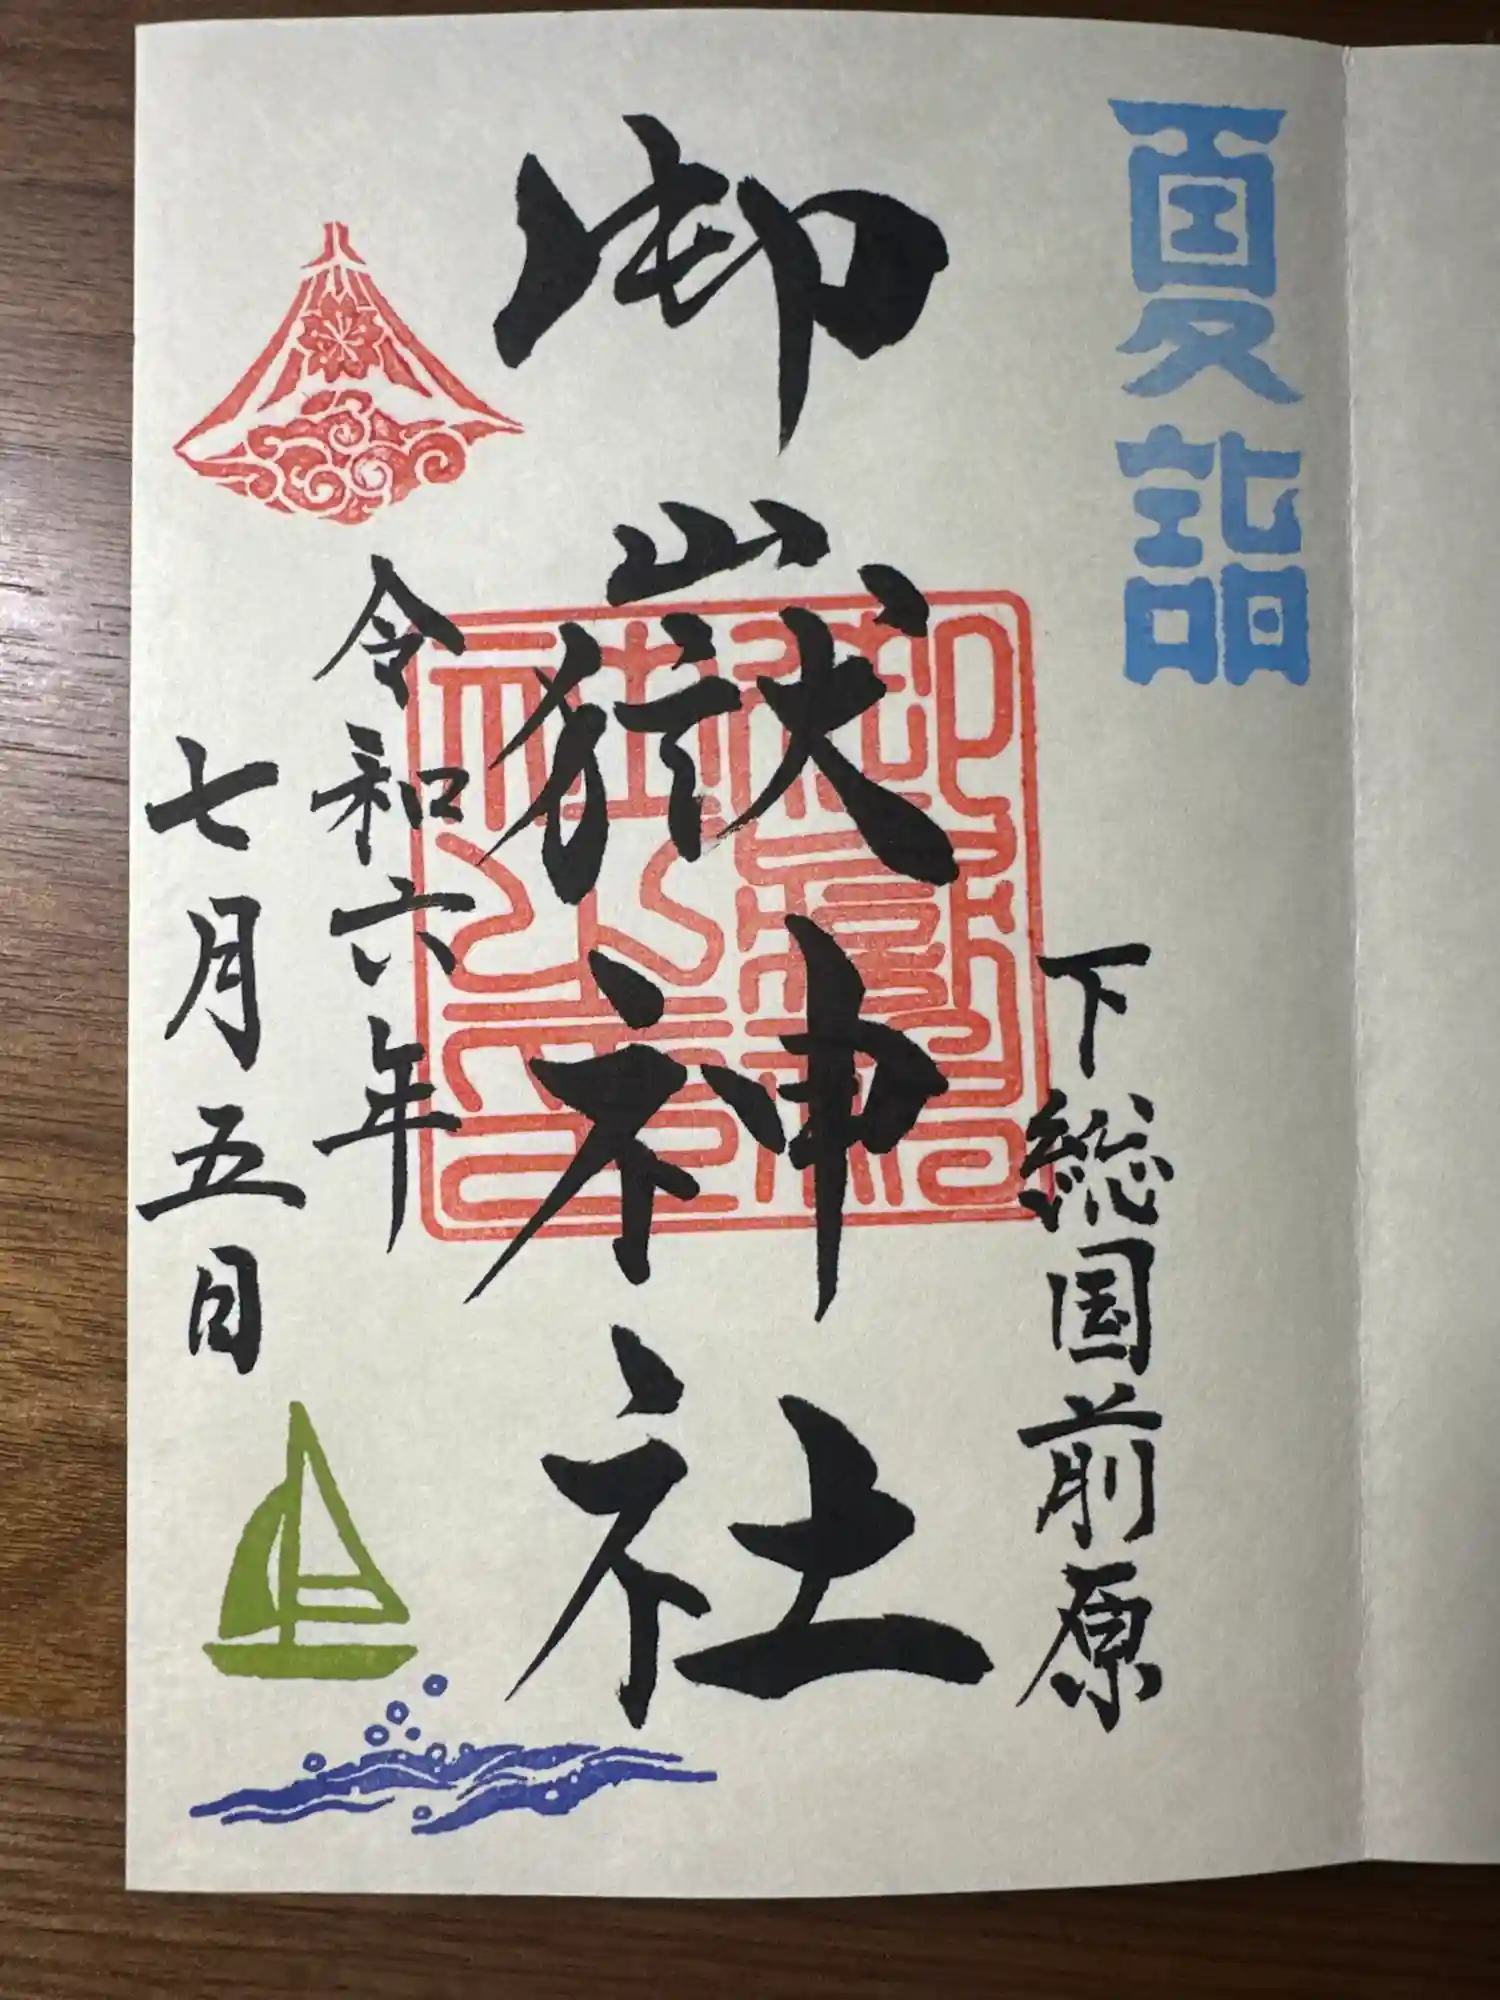 夏詣
下総国前原
御嶽神社
御嶽神社之印
令和六年
七月五日